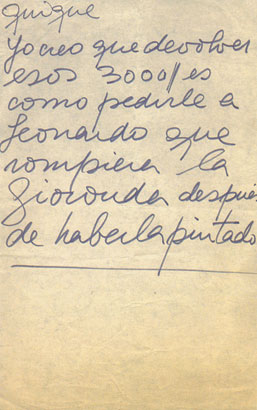 quique
Yo creo que devolver
esos 3000// es
como pedirle a
Leonardo que
rompiera la
Gioconda despues
de haberla pintado